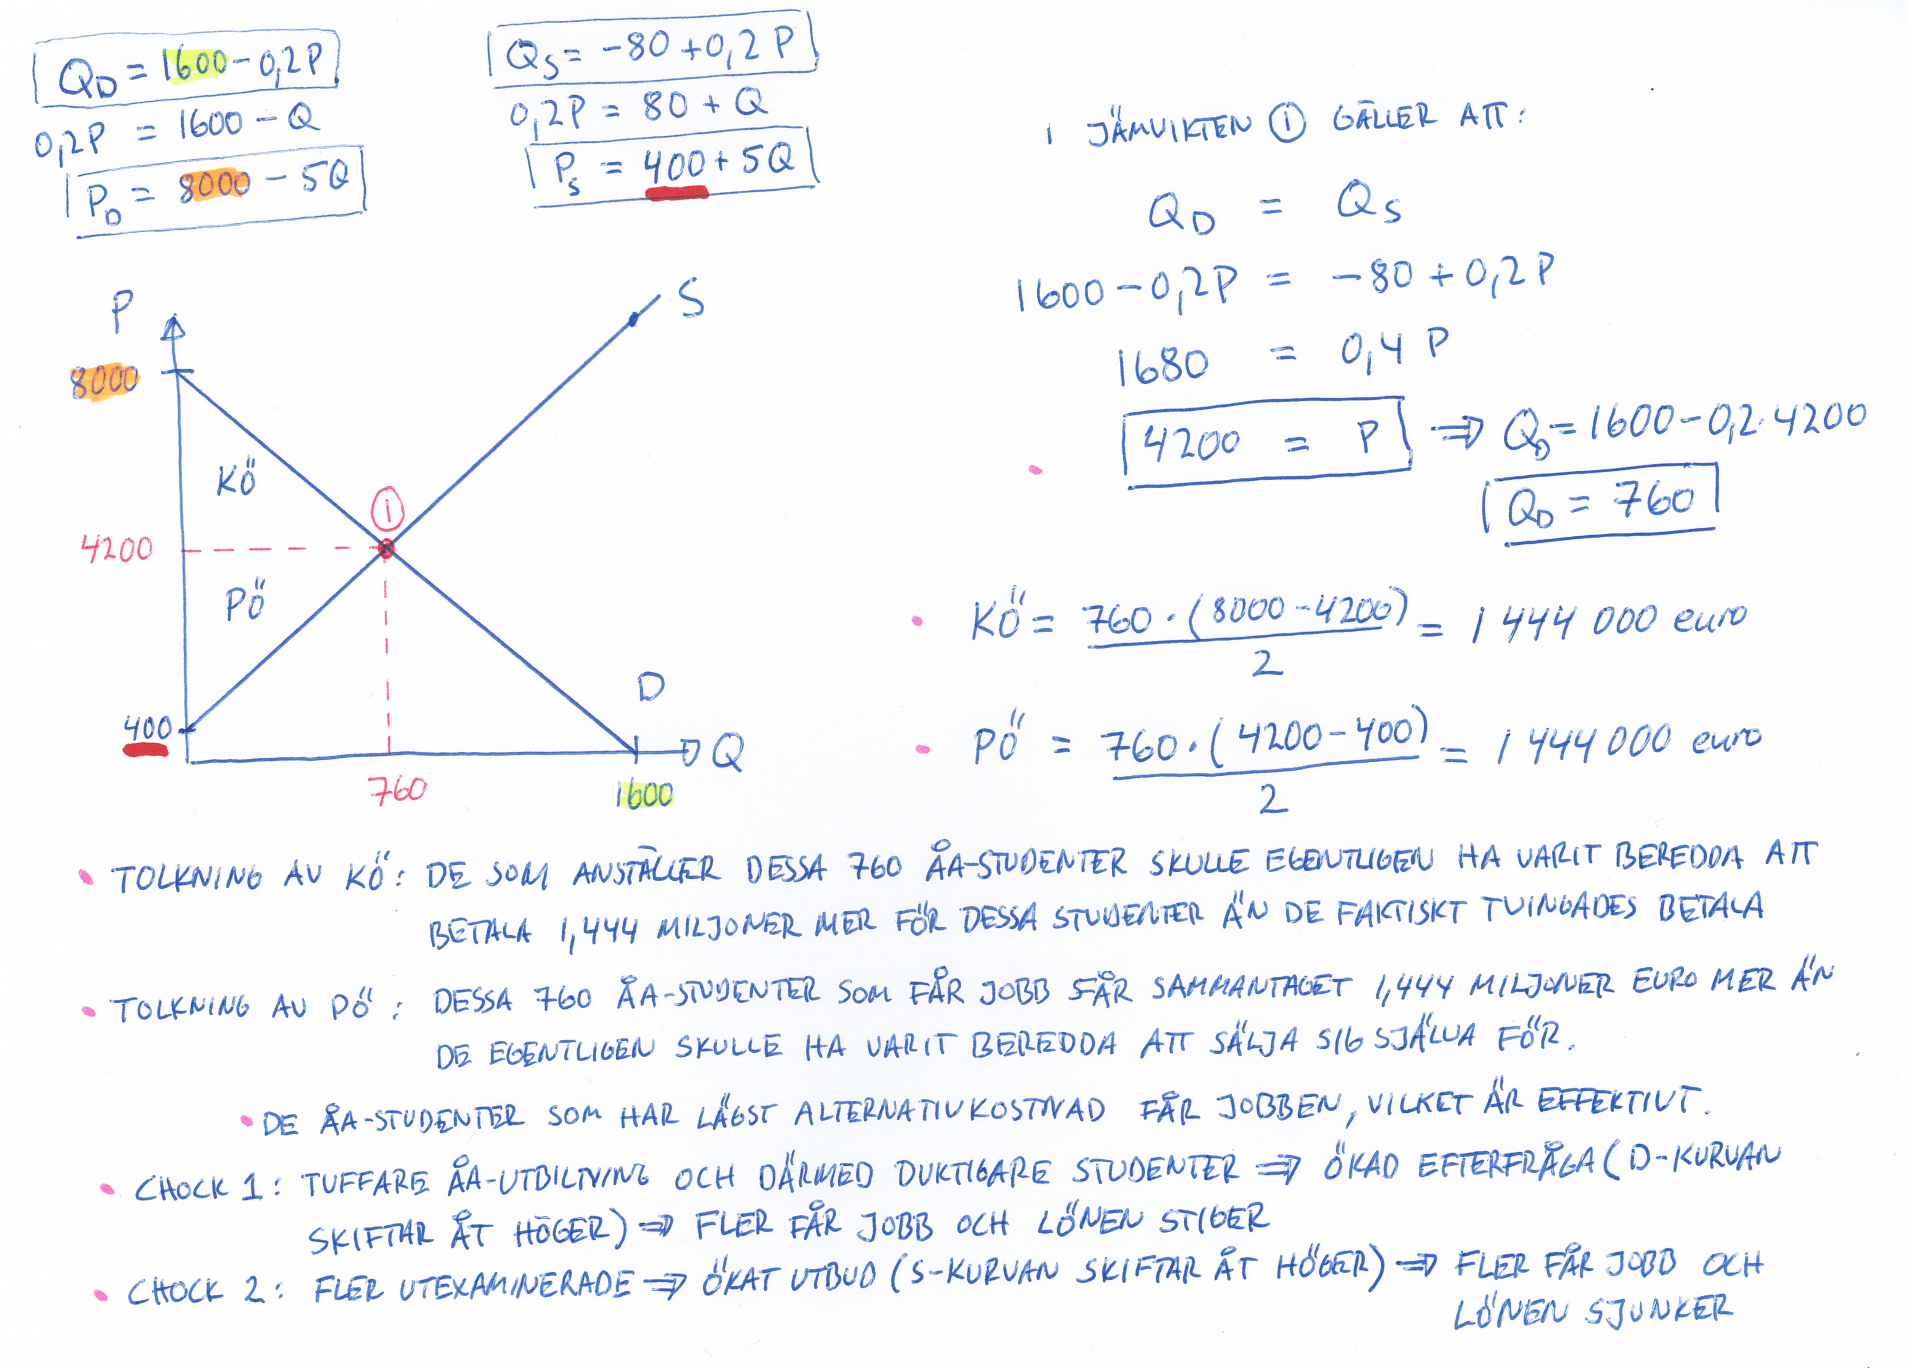 QD = 1600 - 0,2P
0,2P = 1600 - Q
PD = 8000 - 5Q
QS = -80 + 0,2P
0,2P = 80 + Q
PS = 400 + 5Q
I JÄMVIKTEN ① GÄLLER ATT:
QD = QS
1600 - 0,2P = -80 + 0,2P
1680 = 0,4 P
4200 = P ⇒ QD = 1600 - 0,2·4200
QD = 760
P
S
8000
KÖ
①
4200
PÖ
D
400
Q
760
1600
• KÖ = 760·(8000-4200)/2 = 1 444 000 euro
• PÖ = 760·(4200-400)/2 = 1 444 000 euro
• TOLKNING AV KÖ: DE SOM ANSTÄLLER DESSA 760 ÅA-STUDENTER SKULLE EGENTLIGEN HA VARIT BEREDDA ATT
BETALA 1,444 MILJONER MER FÖR DESSA STUDENTER ÄN DE FAKTISKT TVINGADES BETALA
• TOLKNING AV PÖ: DESSA 760 ÅA-STUDENTER SOM FÅR JOBB FÅR SAMMANTAGET 1,444 MILJONER EURO MER ÄN
DE EGENTLIGEN SKULLE HA VARIT BEREDDA ATT SÄLJA SIG SJÄLVA FÖR.
• DE ÅA-STUDENTER SOM HAR LÄGST ALTERNATIVKOSTNAD FÅR JOBBEN, VILKET ÄR EFFEKTIVT.
• CHOCK 1: TUFFARE ÅA-UTBILTNING OCH DÄRMED DUKTIGARE STUDENTER ⇒ ÖKAD EFTERFRÅGA (D-KURVAN
SKIFTAR ÅT HÖGER) ⇒ FLER FÅR JOBB OCH LÖNEN STIGER
• CHOCK 2: FLER UTEXAMINERADE ⇒ ÖKAT UTBUD (S-KURVAN SKIFTAR ÅT HÖGER) ⇒ FLER FÅR JOBB OCH
LÖNEN SJUNKER